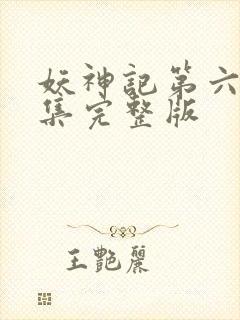 妖神記第六
集完整版
王艷麗